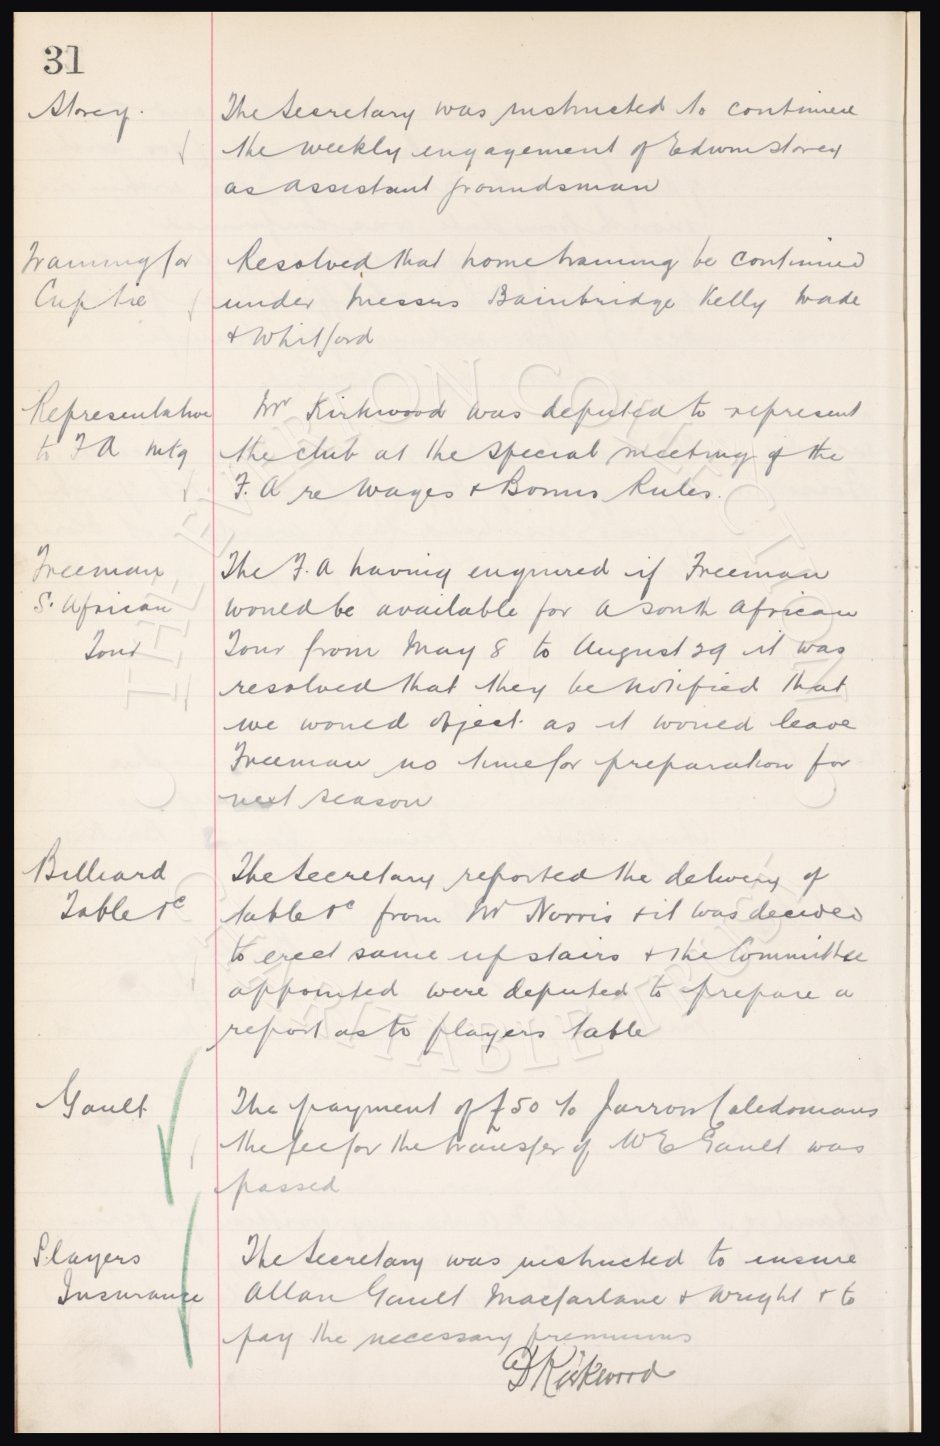 31
Storey.
The Secretary was instructed to continue
the weekly engagement of Edwin Storey
as assistant groundsman
Training for
Cup tie
Resolved that home training be continued
under Messrs Bainbridge Kelly Wade
& Whitford
Representative
to F A mtg
Mr Kirkwood was deputed to represent
the club at the special meeting of the
F. A re Wages & Bonus Rules.
Freeman
S. African
Tour
The F. A having enquired if Freeman
would be available for a South African
Tour from May 8 to August 29 it was
resolved that they be notified that
we would object as it would leave
Freeman no time for preparation for
next season
Billiard
Table &c
The Secretary reported the delivery of
table &c from Mr Norris & it was decided
to erect same upstairs & the Committee
appointed were deputed to prepare a
report as to players table
Gault
The payment of £50 to Jarrow Caledonians
the fee for the transfer of W E Gault was
passed
Players
Insurance
The Secretary was instructed to insure
Allan Gault Macfarlane & Wright & to
pay the necessary premiums
D Kirkwood
THE EVERTON COLLECTION
CHARITABLE TRUST